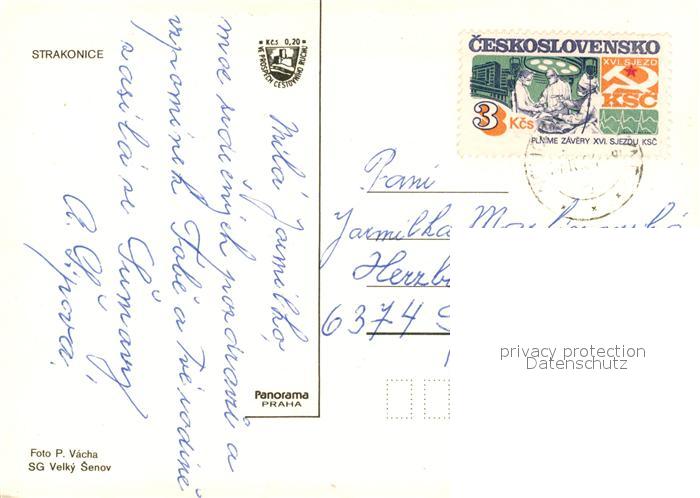 STRAKONICE
Kčs 0,20
VE PROSPĚCH CESTOVNÍHO RUCHU
ČESKOSLOVENSKO
XVI. SJEZD
KSČ
3 Kčs
PLNÍME ZÁVĚRY XVI. SJEZDU KSČ
Milá Jarmilko,
moc srdečných pozdravů a
vzpomínek Tobě a Tvé rodině
zasílá se Šumavy
Paní
Jarmilka
6374
privacy protection
Datenschutz
Panorama
PRAHA
Foto P. Vácha
SG Velký Šenov